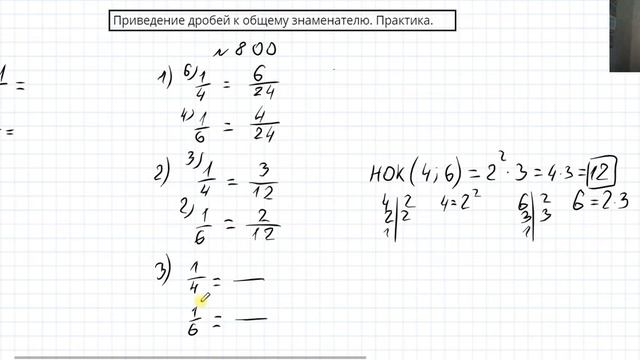 Приведение дробей к общему знаменателю. Практика.
№ 800
1) 6) 1/4 = 6/24
4) 1/6 = 4/24
2) 3) 1/4 = 3/12
2) 1/6 = 2/12
3) 1/4 = —
1/6 = —
НОК(4; 6) = 2² · 3 = 4 · 3 = 12
4 | 2
2 | 2
1 |
4 = 2²
6 | 2
3 | 3
1 |
6 = 2·3
1 =
=